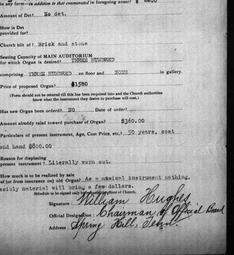 in any form—in addition to that enumerated in foregoing areas? $
Amount of Debt? No det.
How is Det
provided for?
Church built of? Brick and stone
Seating Capacity of MAIN AUDITORIUM
for which Organ is desired? THREE HUNDRED
comprising THREE HUNDRED on floor and NONE in gallery.
Price of proposed Organ? $1580
(Form should not be entered till this has been required into and the Church authorities
know what the instrument they desire to purchase will cost.)
Has new Organ been ordered? NO Date of order?
Amount already raised toward purchase of Organ? $360.00
Particulars of present instrument, Age, Cost Price, etc.? 50 years, cost
hand $800.00
Reason for displacing
present instrument? Literally worn out.
How much is to be realized by sale
of (or from insurance on) old Organ? As a musical instrument nothing,
material will bring a few dollars.
Schedule to be signed
Signature: William Hughes
Official Designation: Chairman of Official Board
Address: Spring Hill, Tenn.